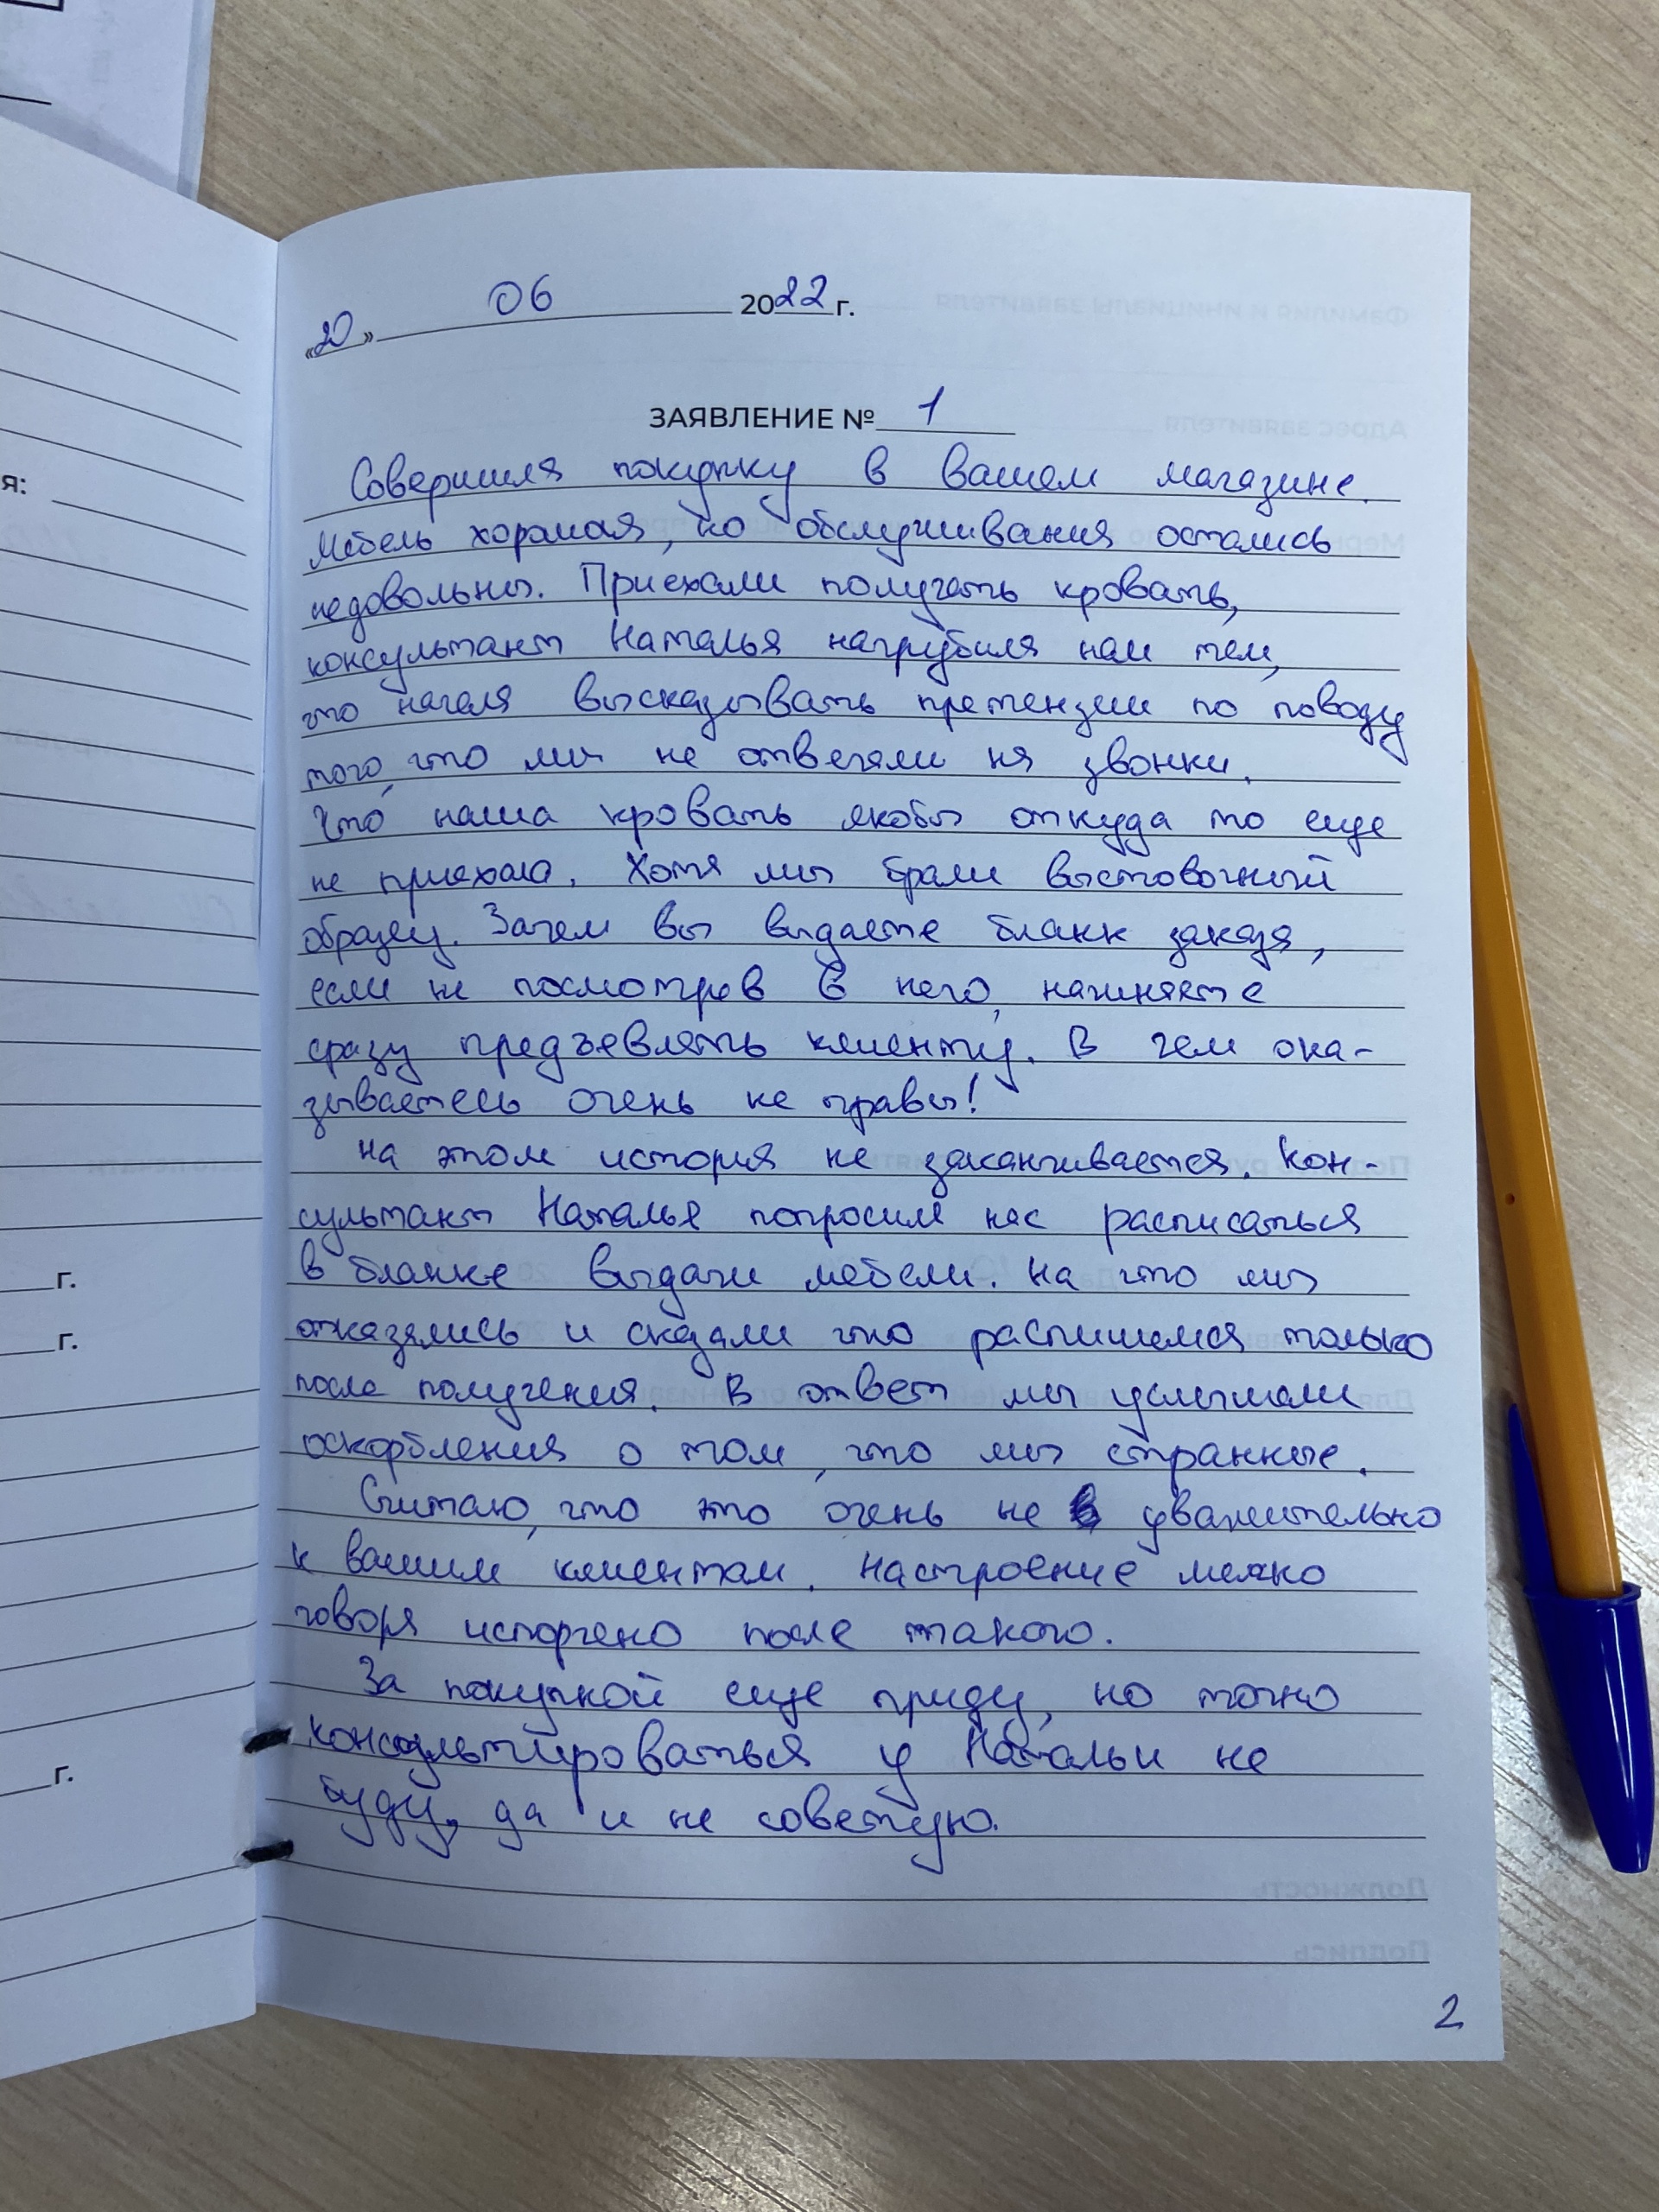 «20» 06 2022 г.
ЗАЯВЛЕНИЕ № 1
Совершила покупку в вашем магазине.
Мебель хорошая, но обслуживания остались
недовольны. Приехали получать кровать,
консультант Наталья нагрубила нам тем,
что начала высказывать претензии по поводу
того, что мы не отвечали на звонки.
Что наша кровать якобы откуда то еще
не приехала. Хотя мы брали выставочный
образец. Зачем вы выдаете бланк заказа,
если не посмотрев в него, начинаете
сразу предъевлять клиенту. В чем ока-
зываетесь очень не правы!
На этом история не заканчивается. Кон-
сультант Наталья попросила нас расписаться
в бланке выдачи мебели. На что мы
отказались и сказали что распишемся только
после получения. В ответ мы услышали
оскорбления о том, что мы странные.
Считаю, что это очень не уважительно
к вашим клиентам. Настроение мягко
говоря испорчено после такого.
За покупкой еще приду, но точно
консультироваться у Натальи не
буду, да и не советую.
2
я:
г.
г.
г.
Фамилия и инициалы заявителя
Адрес заявителя
Должность
Подпись